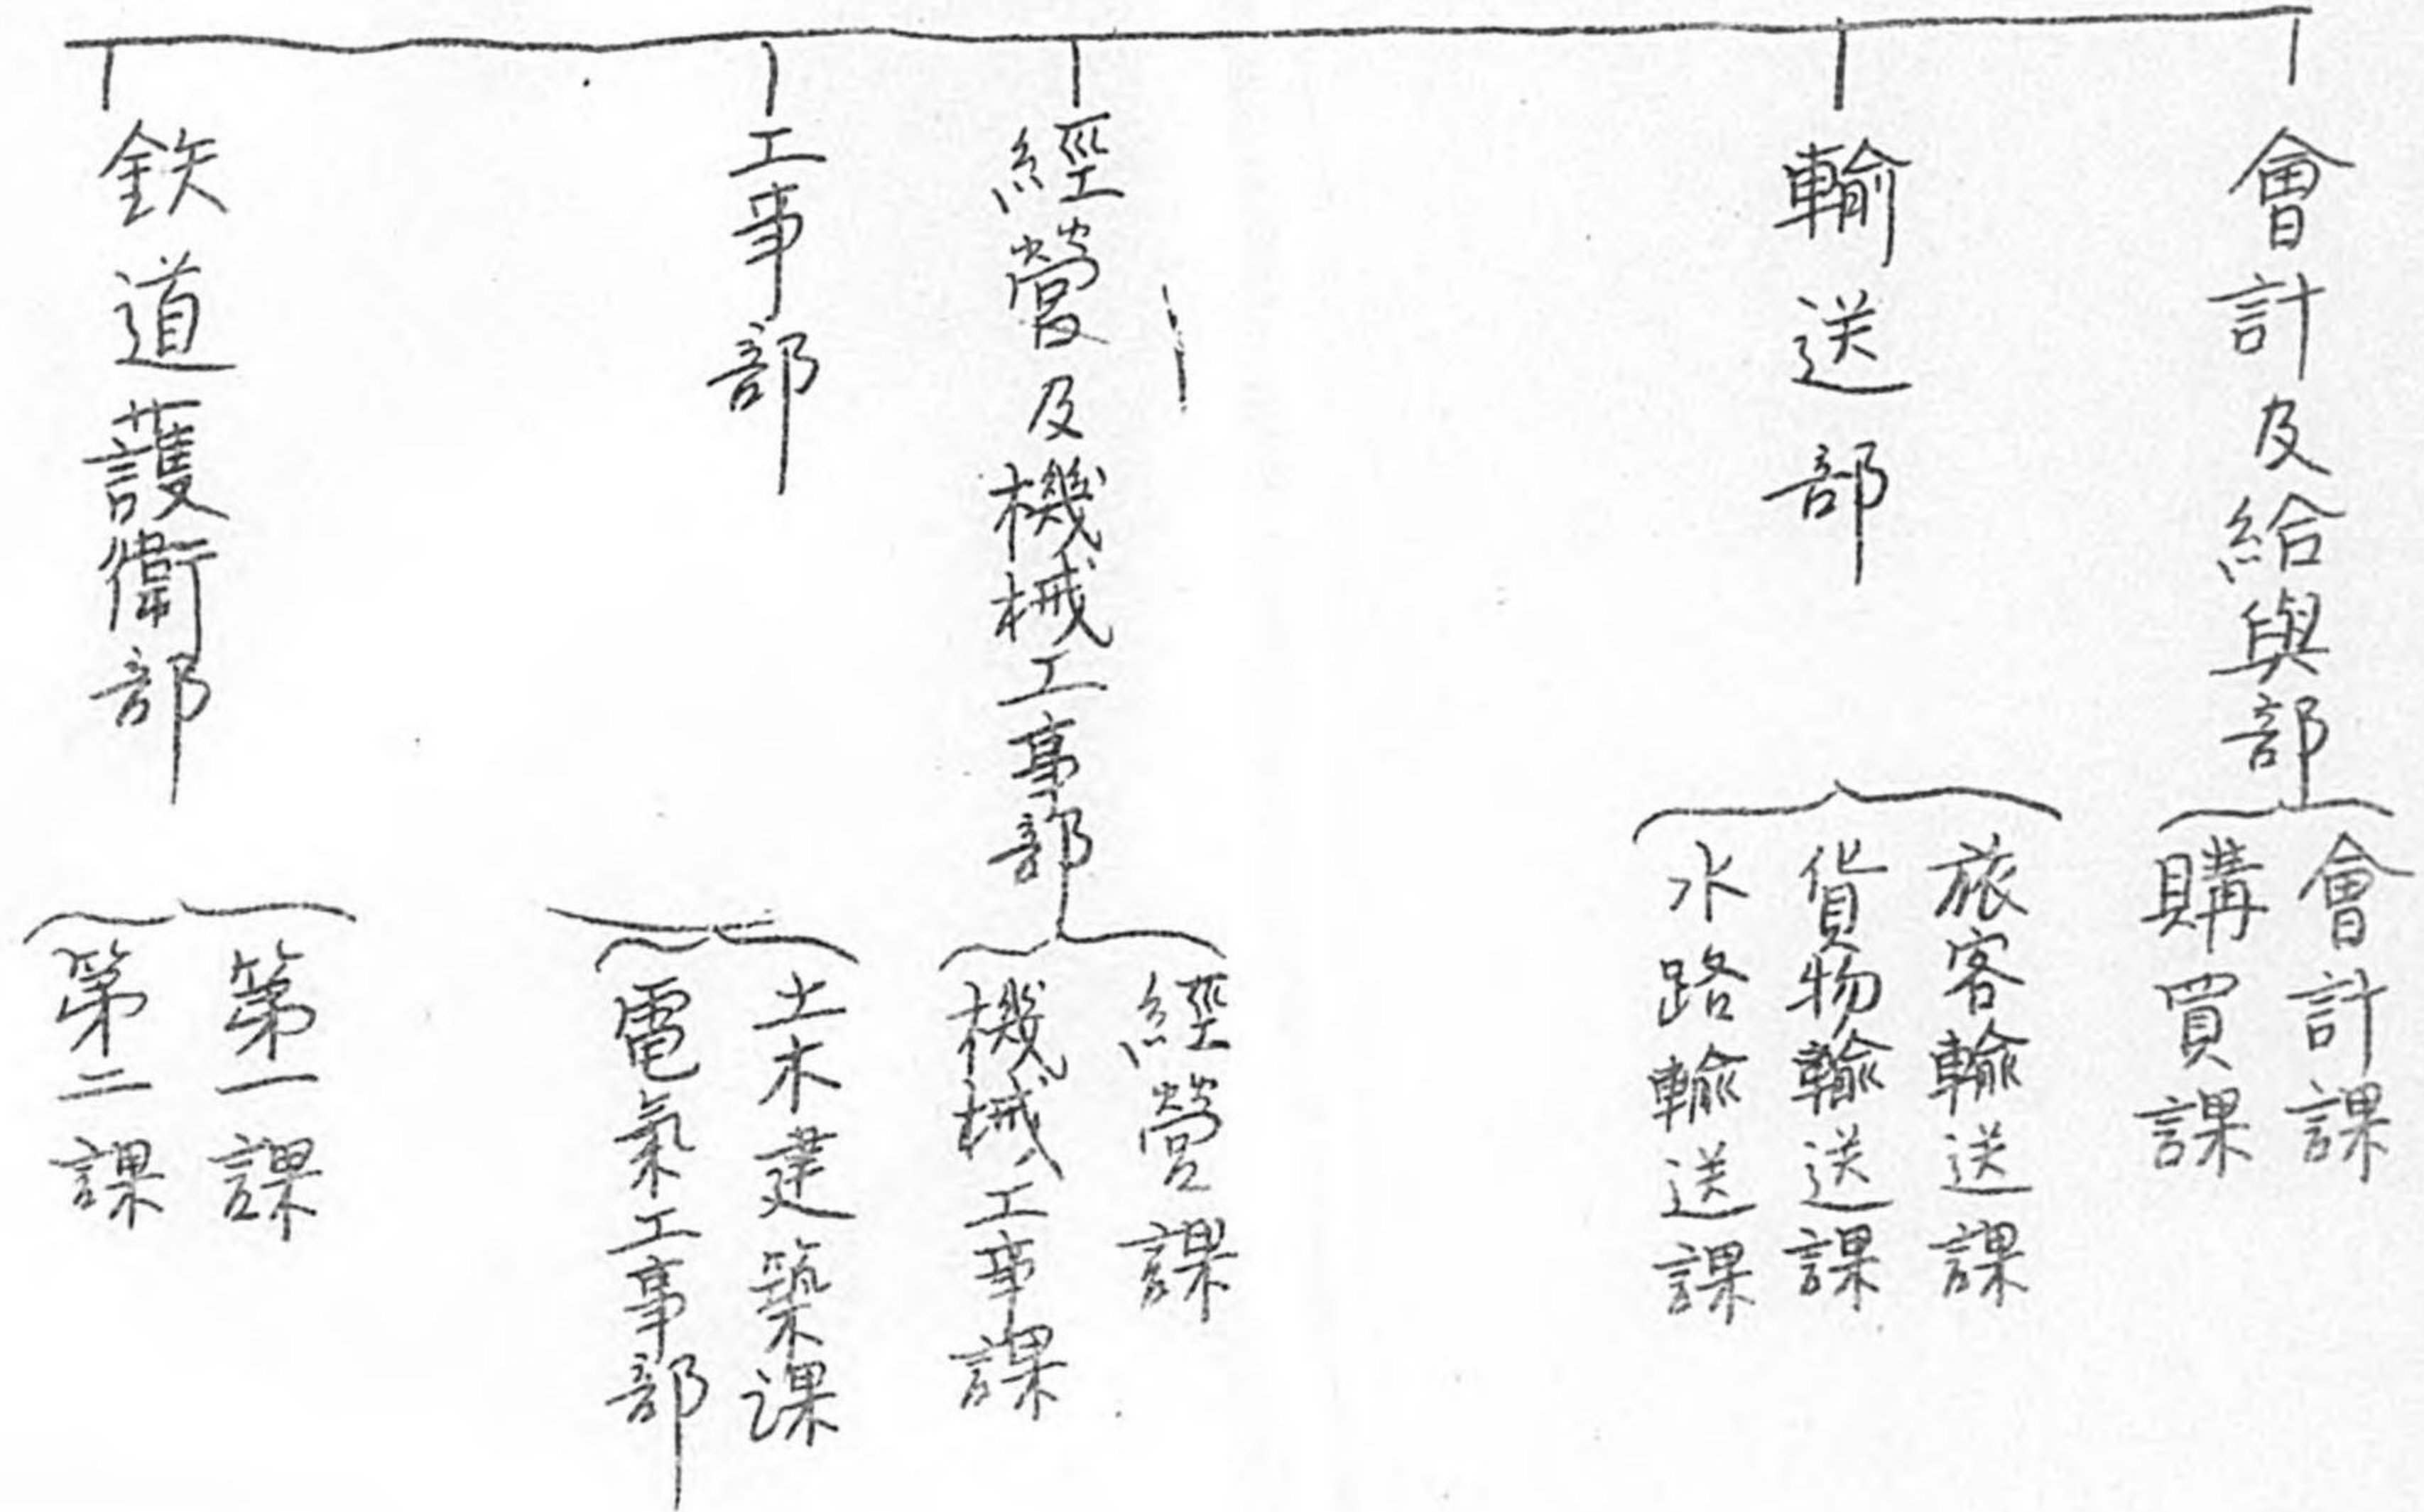 會計及給與部
會計課
購買課
輸送部
旅客輸送課
貨物輸送課
水路輸送課
經營及機械工事部
經營課
機械工事課
工事部
土木建築课
電氣工事部
鉄道護衛部
第一課
第二課